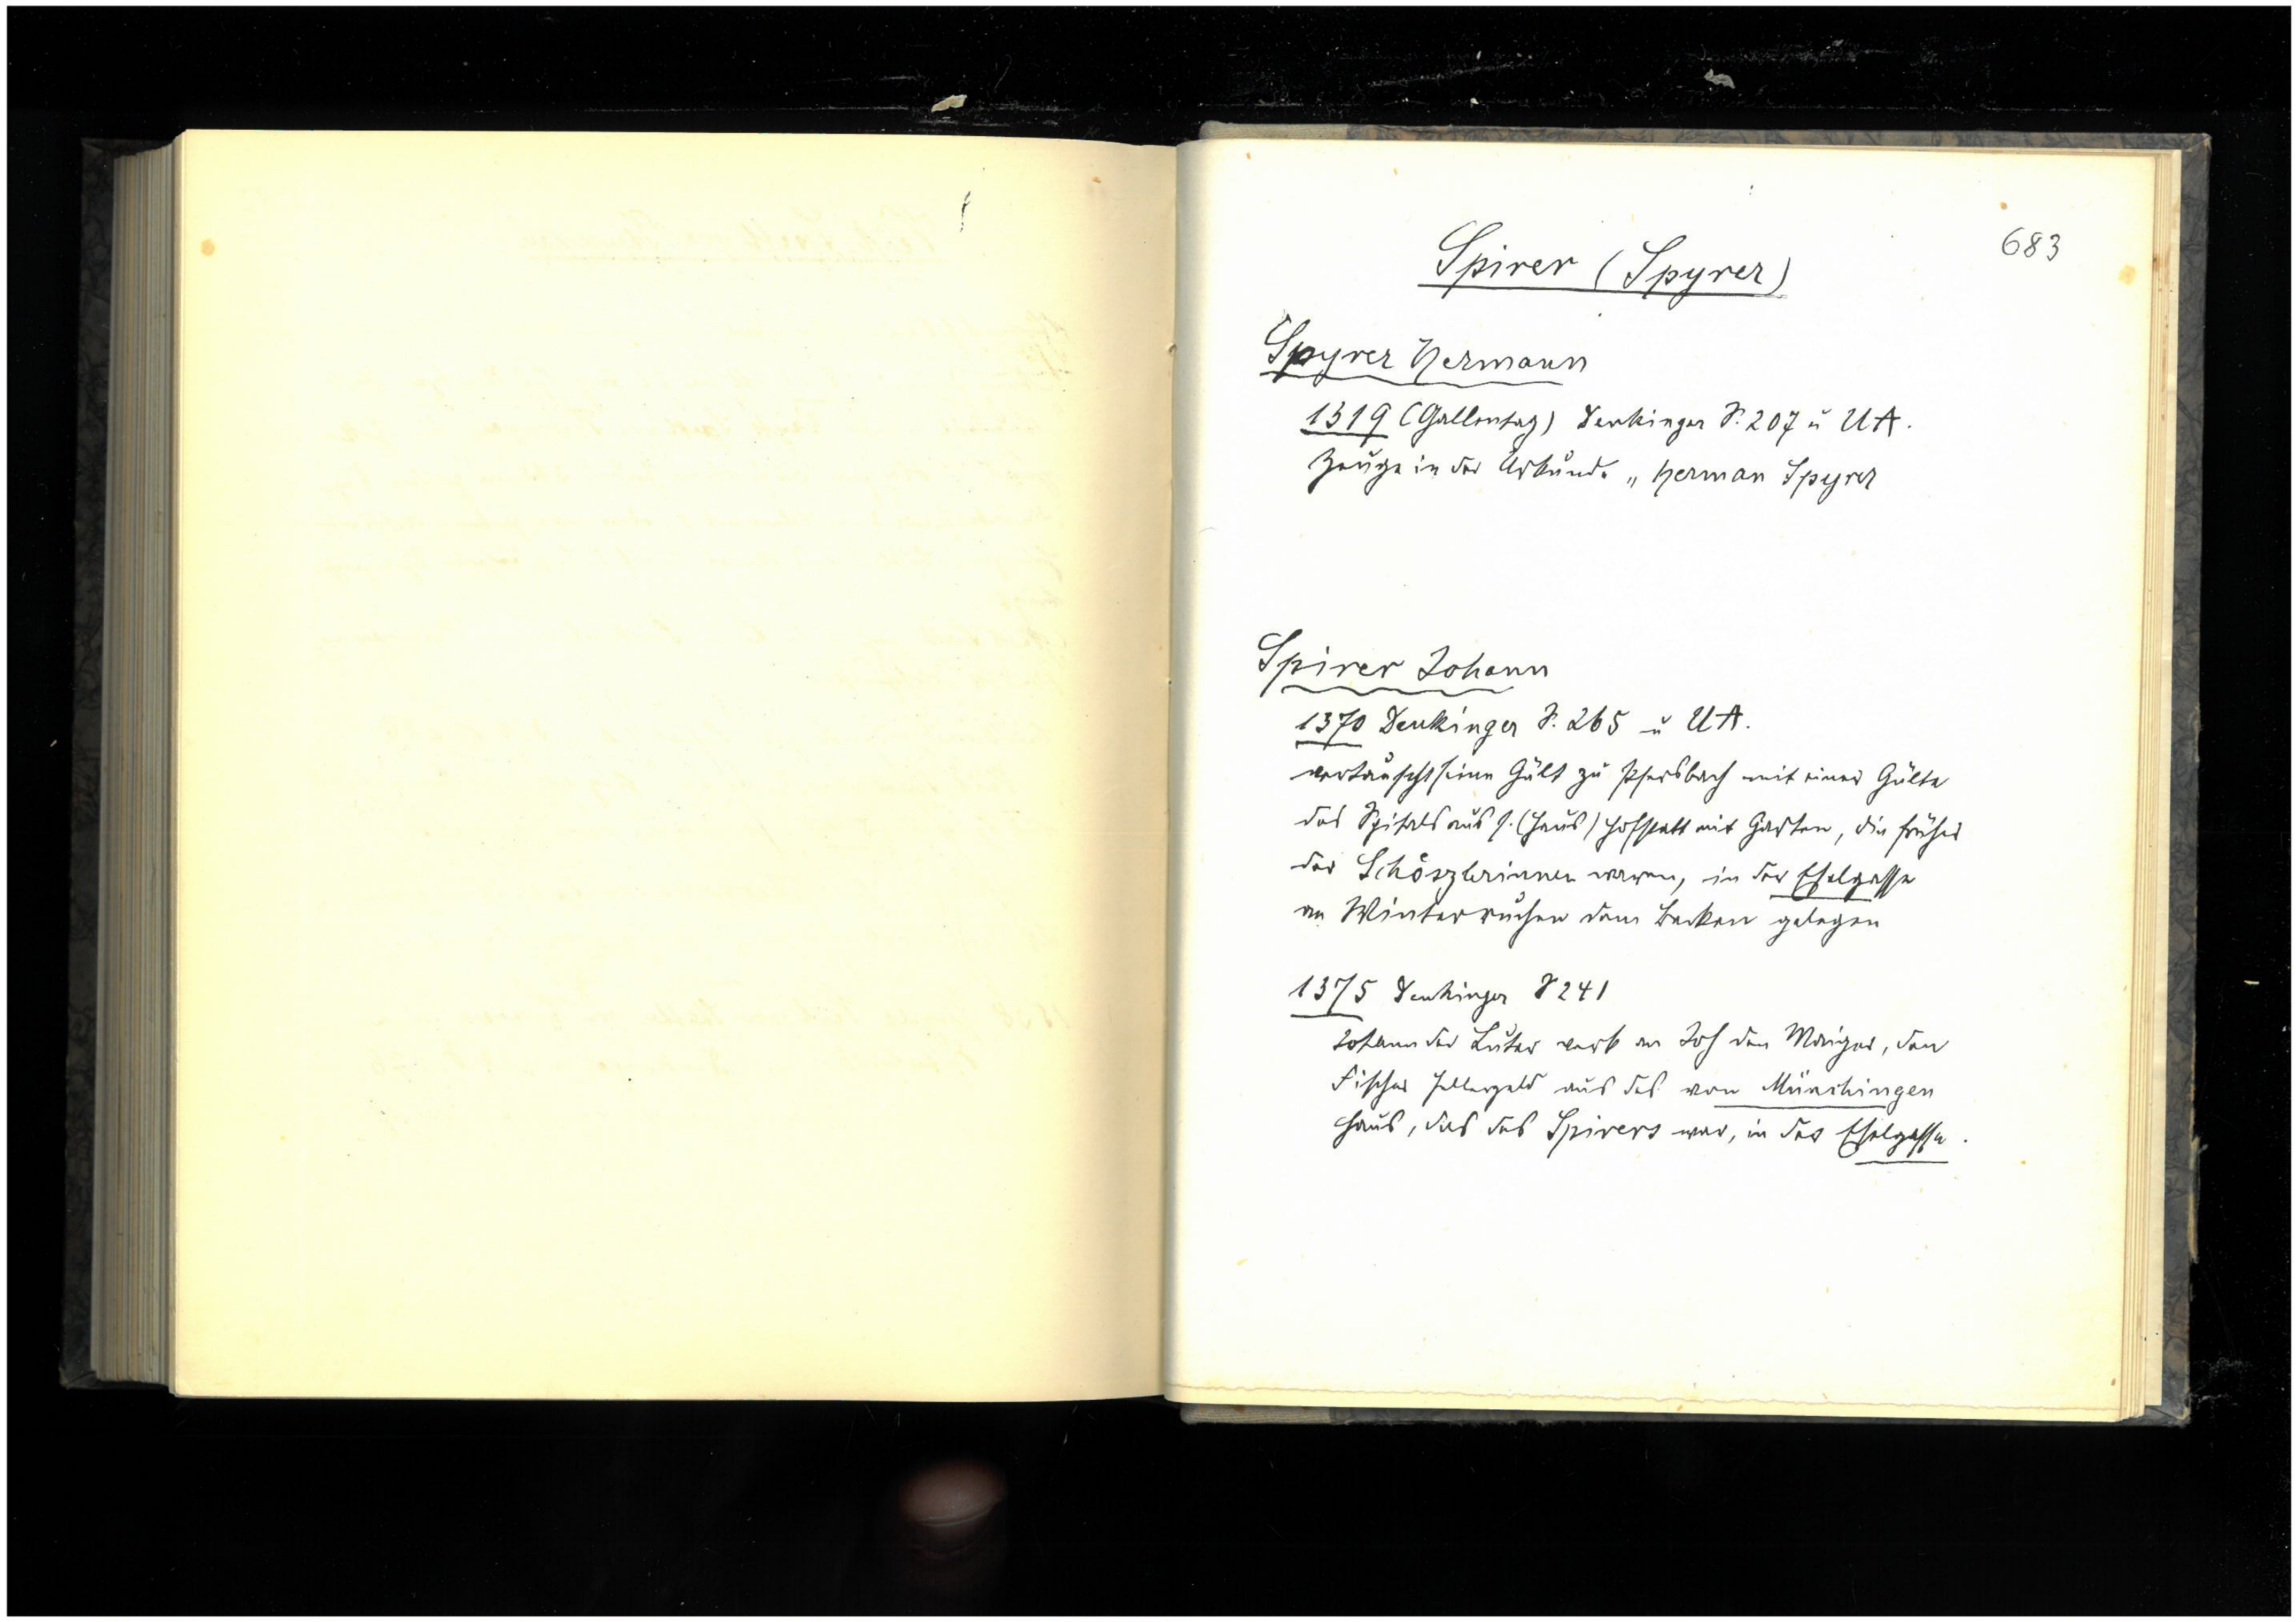 683
Spirer (Spyrer)
Spyrer Hermann
1319 (Gallentag) Denkinger S. 207 u UA.
Zeuge in der Urkunde „ Herman Spyrer
Spirer Johann
1370 Denkinger S. 265 u UA.
vertauscht seine Gült zu Pfersbach mit einer Gülte
des Spitals aus s. (Haus) Hofstatt mit Garten, die früher
der Schöszlerinnen waren, in der Eselgasse
an Winterruchen dem Becken gelegen
1375 Denkinger S 241
Johann der Luter verk an Joh den Maiger, den
Fischer Hellergeld aus des von Münchingen
Haus, das des Spirers war, in der Eselgasse.